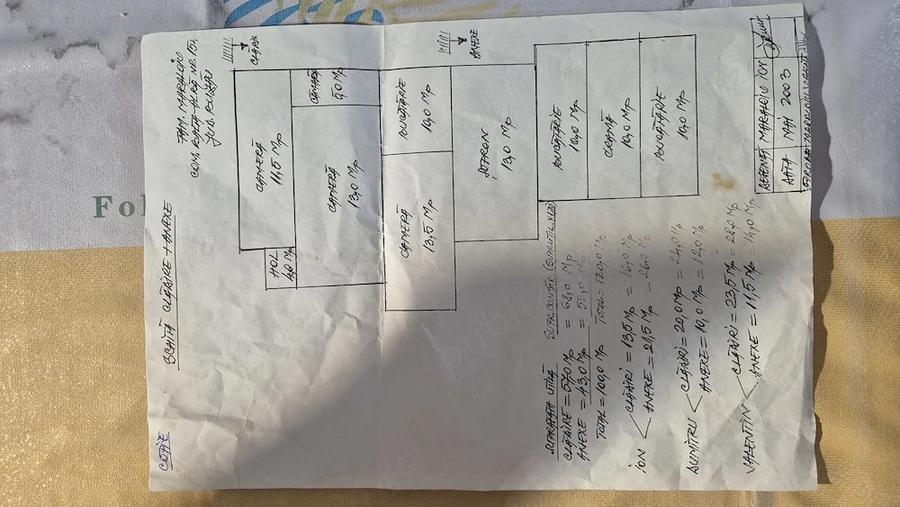 COPIE
SCHITĂ CLĂDIRE + ANEXE
FAM. MARALOIU
JUD. BUZĂU
CLĂDIRE
ANEXE
CAMERĂ
11,5 Mp
CĂMARĂ
5,0 Mp
HOL
4,0 Mp
CAMERĂ
13,0 Mp
CAMERĂ
13,5 Mp
BUCĂTĂRIE
10,0 Mp
ȘOPRON
13,0 Mp
BUCĂTĂRIE
10,0 Mp
CRAMĂ
10,0 Mp
BUCĂTĂRIE
10,0 Mp
SUPRAFAȚA UTILĂ
CLĂDIRE = 57,0 Mp = 68,0 Mp
ANEXE = 43,0 Mp = 52,0 Mp
TOTAL = 100,0 Mp TOTAL = 120,0 Mp
ION CLĂDIRI = 13,5 Mp = 16,0 Mp
ANEXE = 21,5 Mp = 26,0 Mp
DUMITRU CLĂDIRI = 20,0 Mp = 24,0 Mp
ANEXE = 10,0 Mp = 12,0 Mp
VALENTIN CLĂDIRI = 23,5 Mp = 28,0 Mp
ANEXE = 11,5 Mp = 14,0 Mp
MARALOIU ION
DATA MAI 2003
Fol